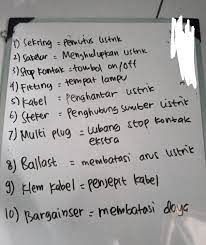 1) Sekring = pemutus listrik
2) Sakelar = Menghidupkan listrik
3) Stop kontak = tombol on/off
4) Fitting = tempat lampu
5) Kabel = Penghantar listrik
6) Steker = Penghubung sumber listrik
7) Multi plug = lubang stop kontak
ekstra
8) Ballast = membatasi arus listrik
9) Klem kabel = penjepit kabel
10) Bargainser = membatasi daya